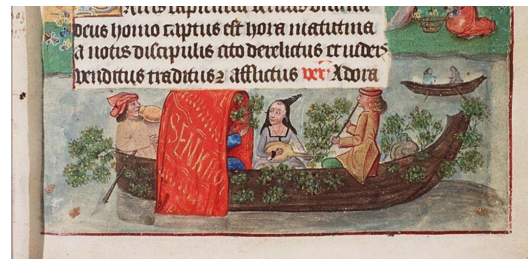 deus homo captus est hora matutina
a notis discipulis cito derelictus et iudeis
venditus traditus afflictus ver Adora